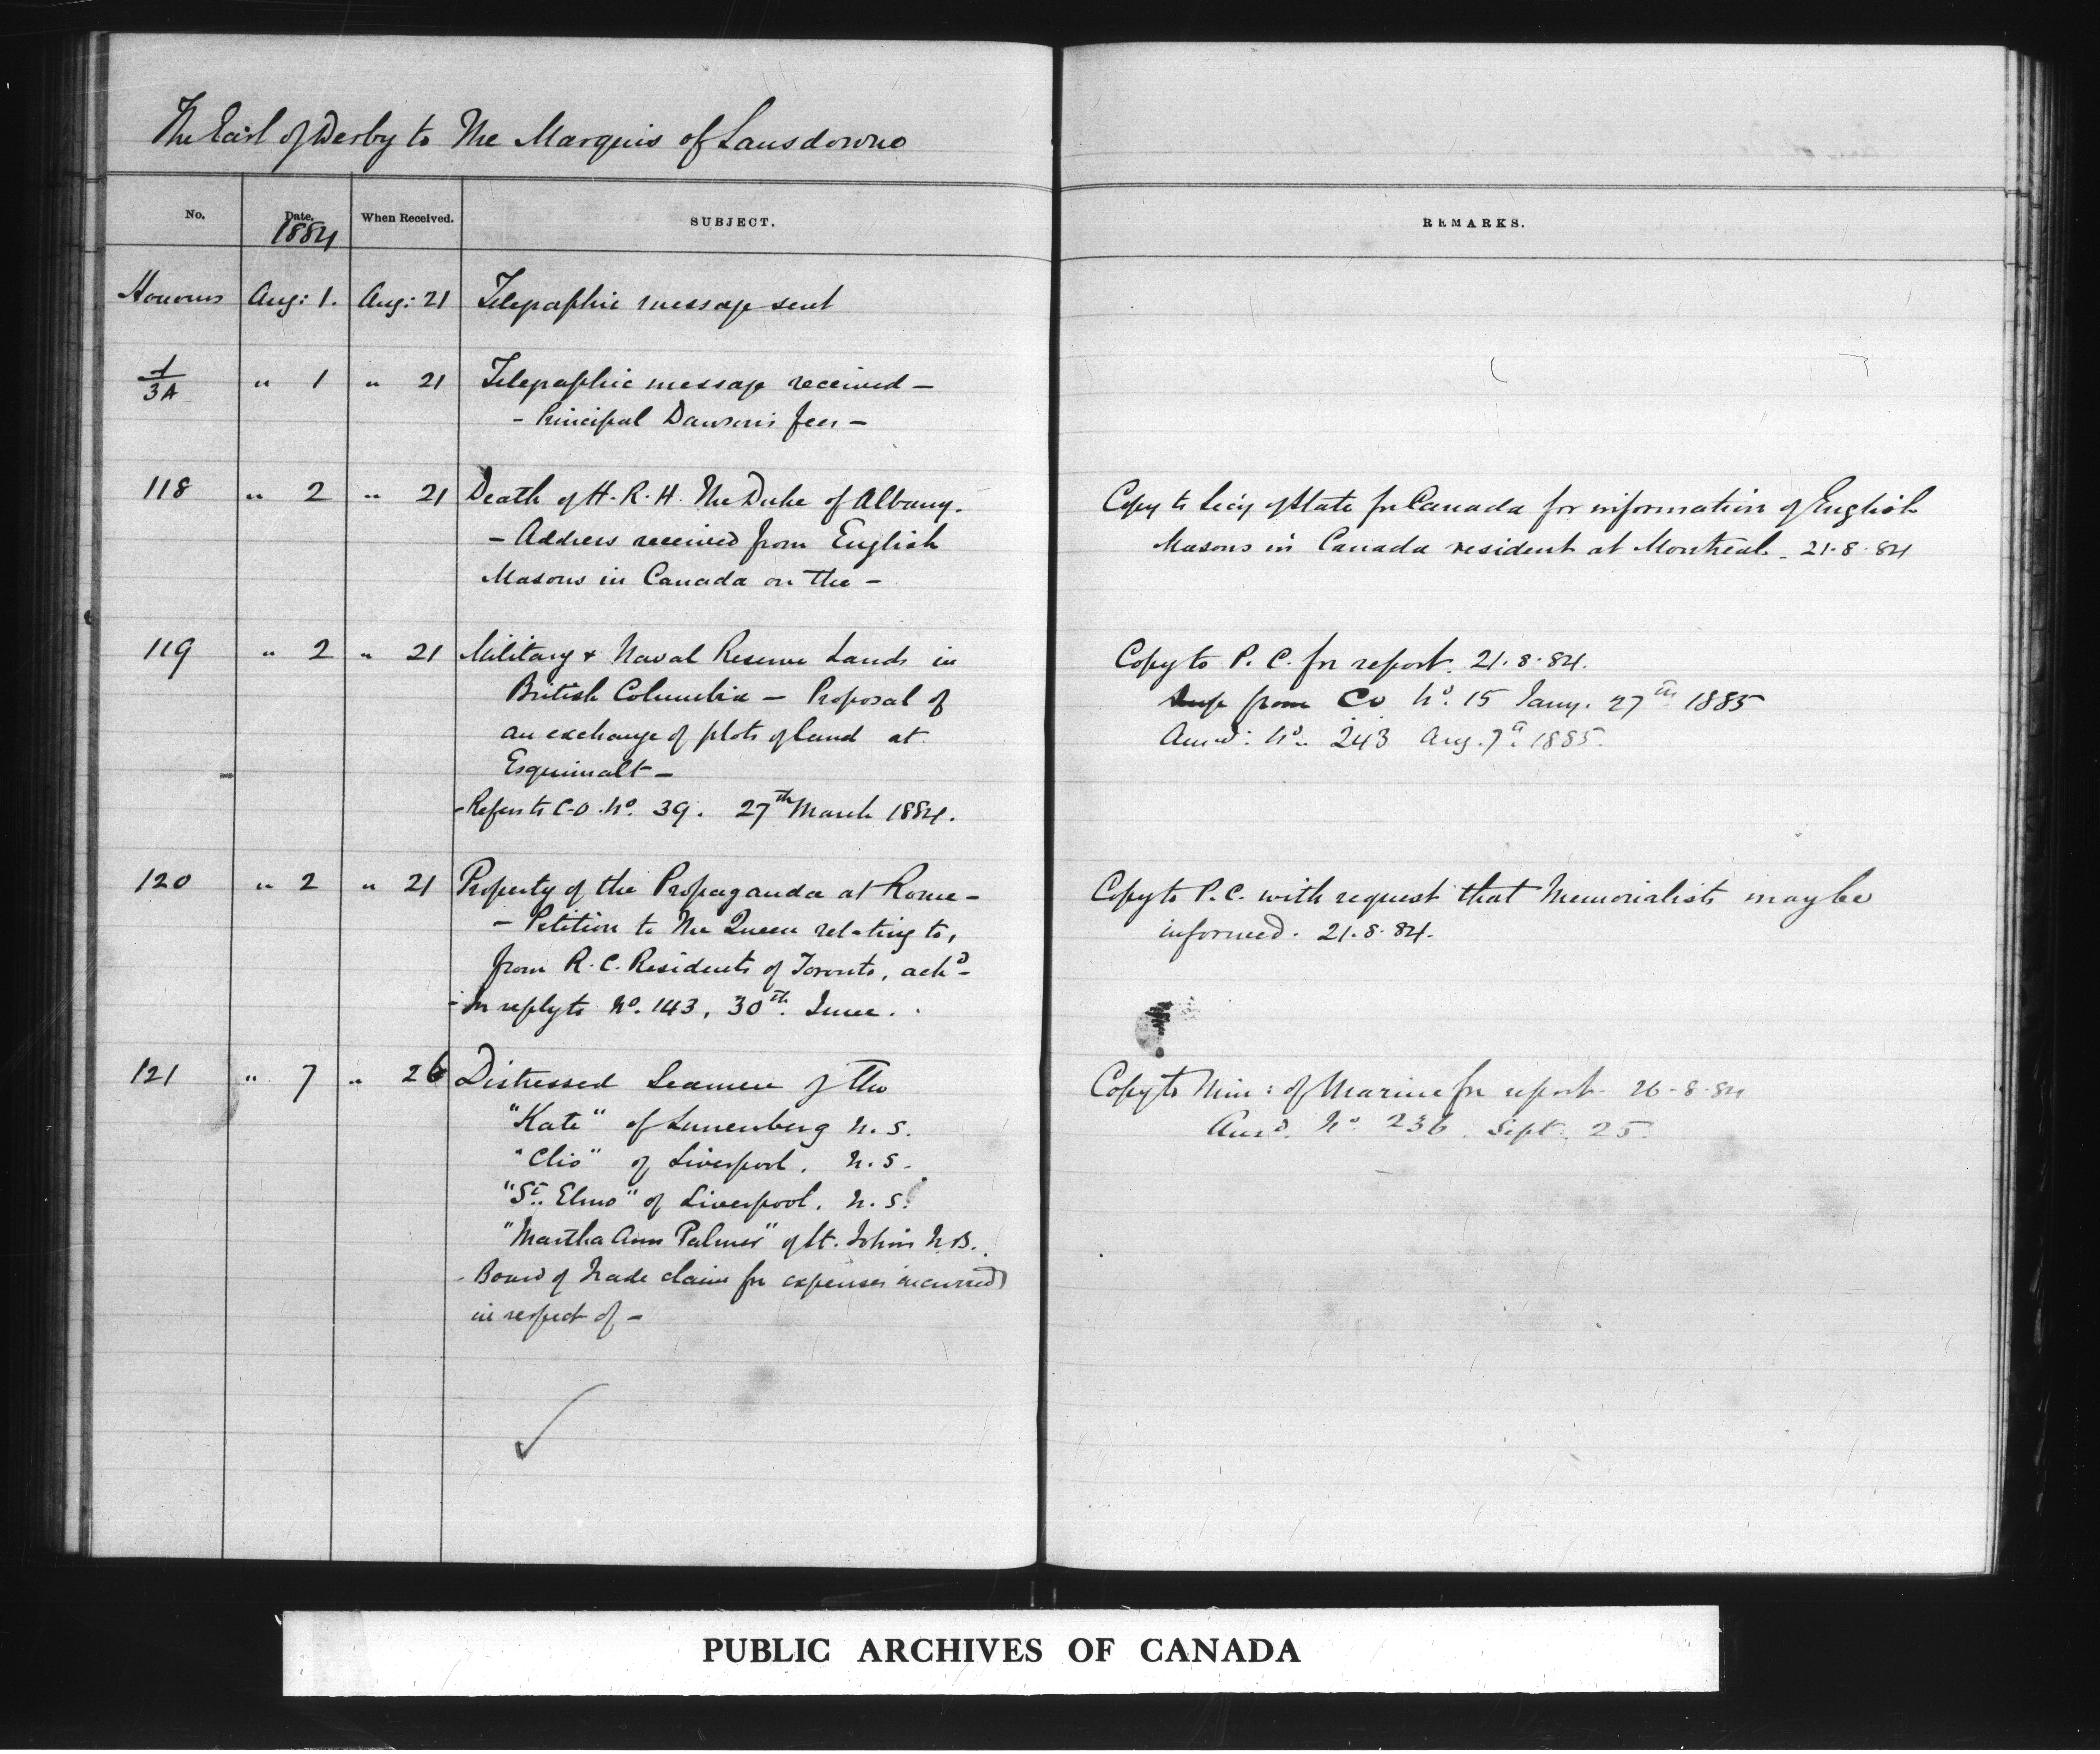 The Earl of Derby to The Marquis of Lansdowne
No. Date. When Received. SUBJECT. REMARKS.
1884
Honours Aug: 1. Aug: 21 Telegraphic message sent
1/3A " 1 " 21 Telegraphic message received —
- Principal Dawson's fees —
118 " 2 " 21 Death of H.R.H. The Duke of Albany. Copy to Secy of State for Canada for information of English
- Address received from English Masons in Canada resident at Montreal - 21.8.84
Masons in Canada on the -
119 " 2 " 21 Military & Naval Reserve Lands in Copy to P.C. for report. 21.8.84.
British Columbia - Proposal of from CO No. 15 Jany. 27th 1885
an exchange of plots of land at Answd: No. 243 Aug. 7th 1885.
Esquimalt -
- Refers to C.O. No. 39. 27th March 1884.
120 " 2 " 21 Property of the Propaganda at Rome - Copy to P.C. with request that Memorialists may be
- Petition to The Queen relating to, informed. 21.8.84.
from R.C. Residents of Toronto, ackd -
- In reply to No. 143, 30th June.
121 " 7 " 26 Distressed Seamen of the Copy to Min: of Marine for report - 26-8-84
"Kate" of Lunenberg N.S. Ansd. No. 236. Sept. 25.
"Clio" of Liverpool. N.S.
"St. Elmo" of Liverpool. N.S.
"Martha Ann Palmer" of St. John's N.B.
- Board of Trade claim for expenses incurred
in respect of -
PUBLIC ARCHIVES OF CANADA